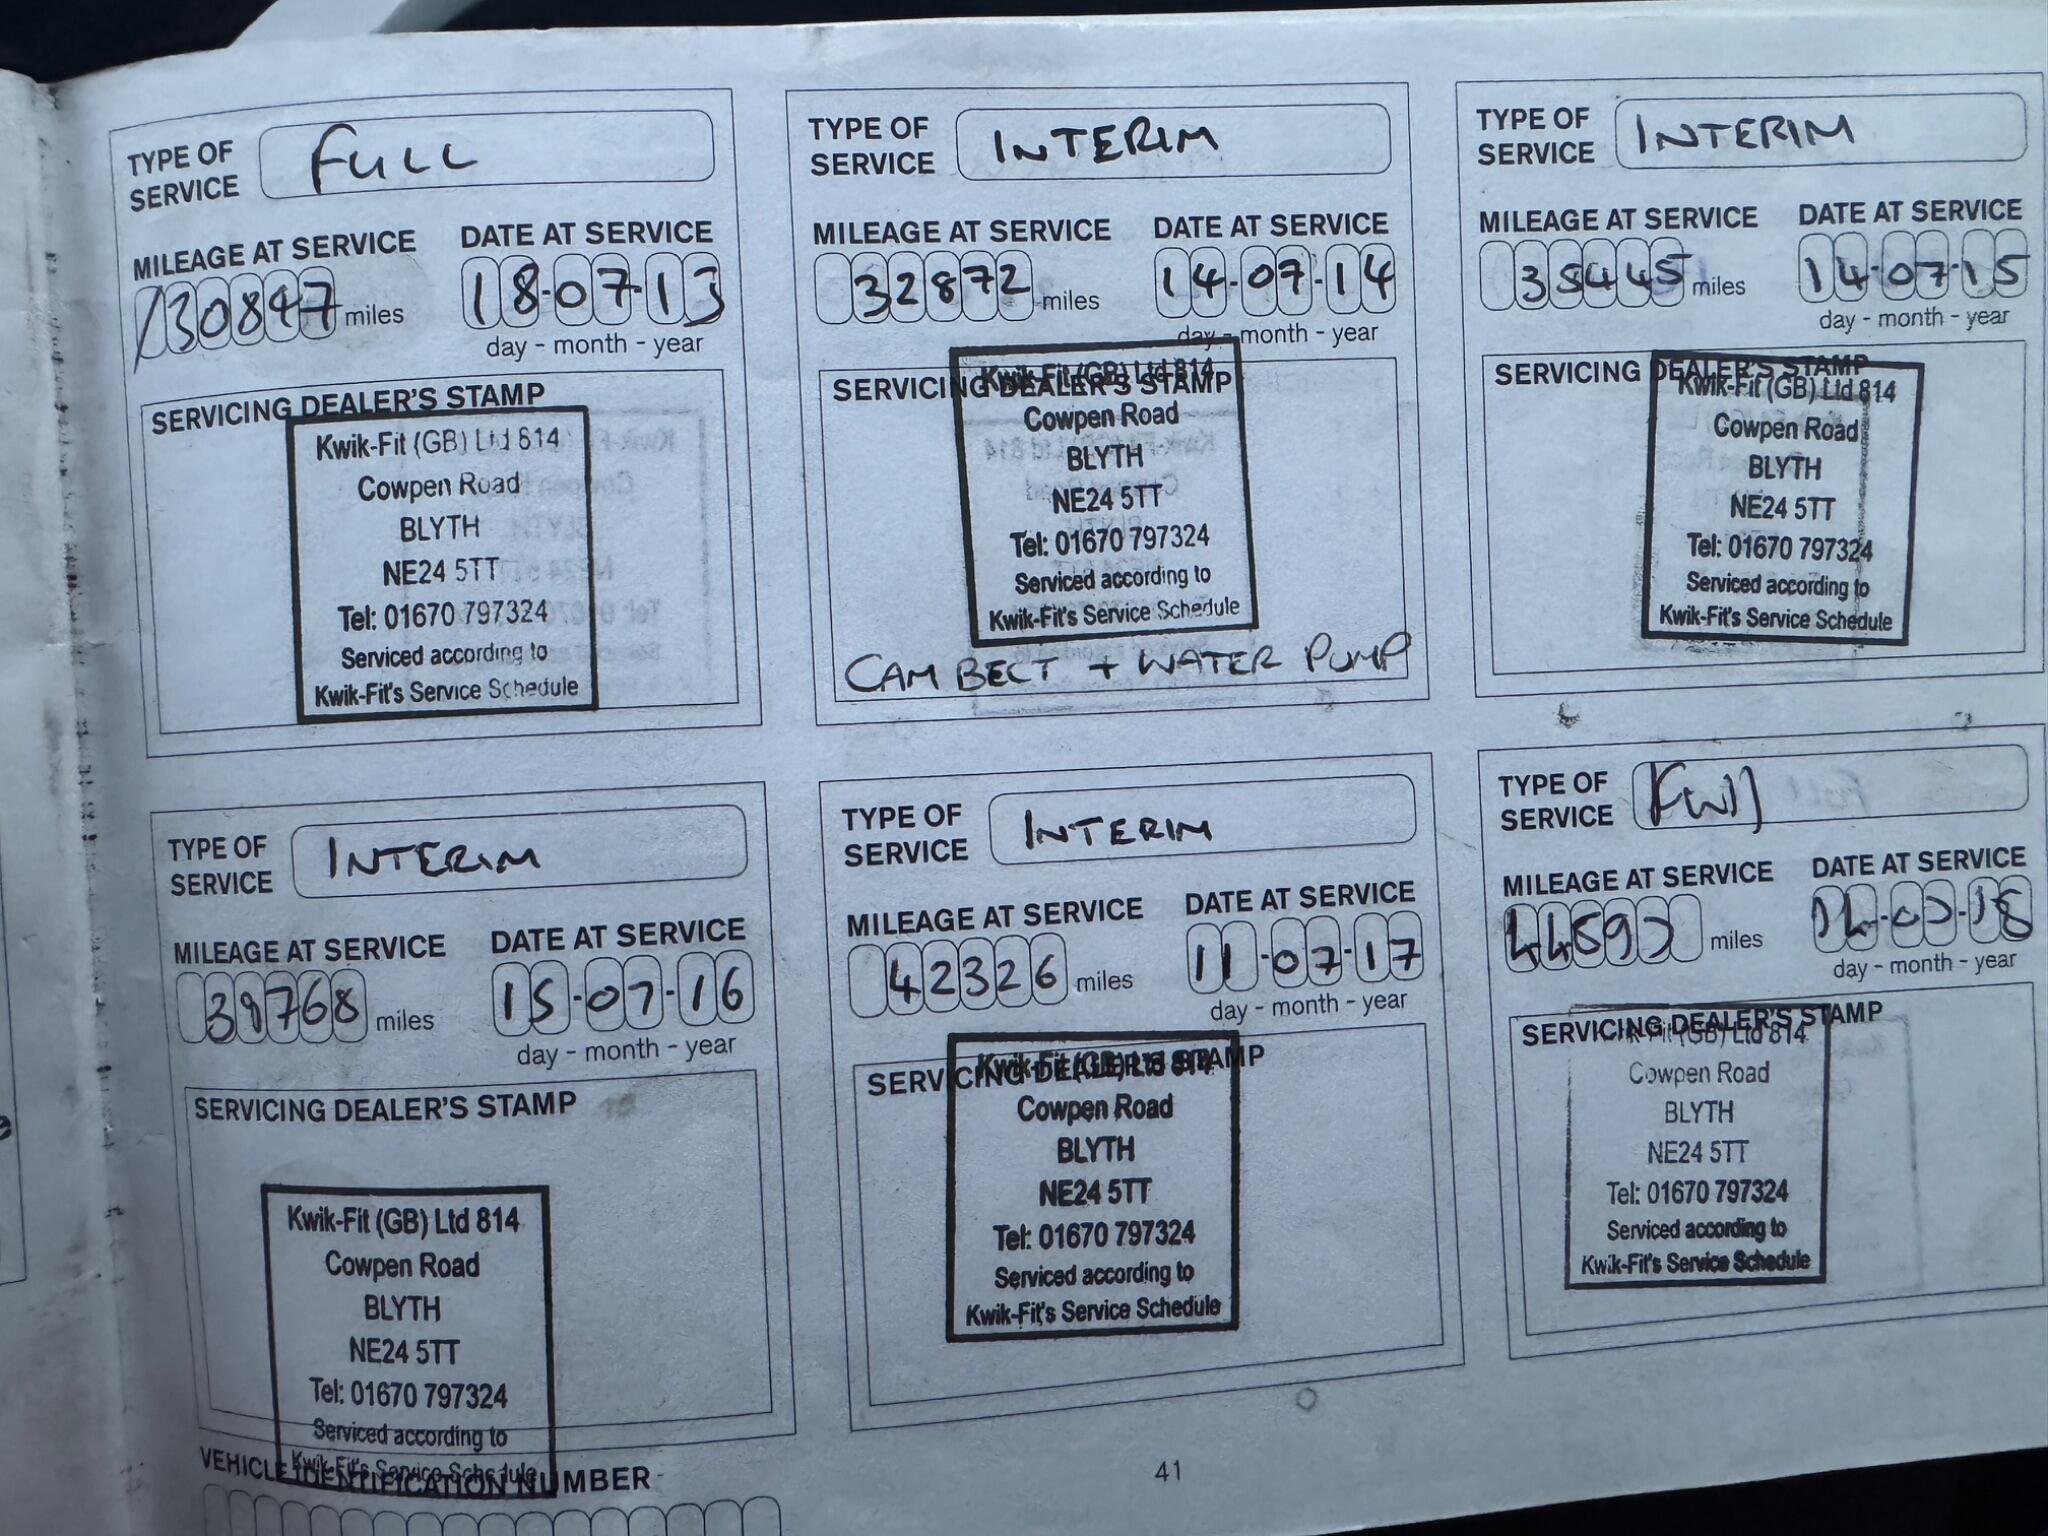 TYPE OF SERVICE FULL
MILEAGE AT SERVICE DATE AT SERVICE
/30897 miles 18-07-13
day - month - year
SERVICING DEALER'S STAMP
Kwik-Fit (GB) Ltd 814
Cowpen Road
BLYTH
NE24 5TT
Tel: 01670 797324
Serviced according to
Kwik-Fit's Service Schedule
TYPE OF SERVICE INTERIM
MILEAGE AT SERVICE DATE AT SERVICE
32872 miles 14-07-14
day - month - year
SERVICING DEALER'S STAMP
Kwik-Fit (GB) Ltd 814
Cowpen Road
BLYTH
NE24 5TT
Tel: 01670 797324
Serviced according to
Kwik-Fit's Service Schedule
CAM BELT + WATER PUMP
TYPE OF SERVICE INTERIM
MILEAGE AT SERVICE DATE AT SERVICE
35445 miles 14-07-15
day - month - year
SERVICING DEALER'S STAMP
Kwik-Fit (GB) Ltd 814
Cowpen Road
BLYTH
NE24 5TT
Tel: 01670 797324
Serviced according to
Kwik-Fit's Service Schedule
TYPE OF SERVICE INTERIM
MILEAGE AT SERVICE DATE AT SERVICE
miles 15-07-16
day - month - year
SERVICING DEALER'S STAMP
Kwik-Fit (GB) Ltd 814
Cowpen Road
BLYTH
NE24 5TT
Tel: 01670 797324
Serviced according to
Kwik-Fit's Service Schedule
TYPE OF SERVICE INTERIM
MILEAGE AT SERVICE DATE AT SERVICE
42326 miles 11-07-17
day - month - year
SERVICING DEALER'S STAMP
Kwik-Fit (GB) Ltd 814
Cowpen Road
BLYTH
NE24 5TT
Tel: 01670 797324
Serviced according to
Kwik-Fit's Service Schedule
TYPE OF SERVICE Full
MILEAGE AT SERVICE DATE AT SERVICE
miles
day - month - year
SERVICING DEALER'S STAMP
Kwik-Fit (GB) Ltd 814
Cowpen Road
BLYTH
NE24 5TT
Tel: 01670 797324
Serviced according to
Kwik-Fit's Service Schedule
VEHICLE IDENTIFICATION NUMBER
41